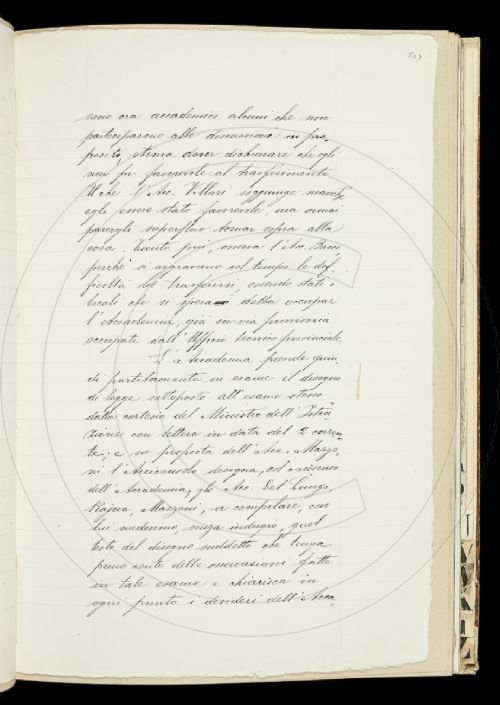 507
sono ora accademici alcuni che non
parteciparono alle discussioni in pro-
posito, stima dover dichiarare che egli
non fu favorevole al trasferimento.
Al che l'Acc. Villari soggiunge neanche
egli essere stato favorevole, ma ormai
parergli superfluo tornar sopra alla
cosa. Tanto più, osserva l'Acc.
perché si aggravano col tempo le dif-
ficoltà del trasferirsi, essendo stati i
locali che si spera debba occupar
l'Accademia, già in via provvisoria
occupati dall'Ufficio tecnico provinciale.
L'Accademia prende quin
di partitamente in esame il disegno
di legge sottoposto all'esame stesso
dalla cortesia del Ministro dell'Istru-
zione con lettera in data del 2 corren-
te; e su proposta dell'Acc. Mazzo
ni l'Arciconsolo designa, col consenso
dell'Accademia, gli Acc. Del Lungo,
Rajna, Mazzoni, a compilare, con
lui medesimo, senza indugio, quel
testo del disegno suddetto che tenga
pieno conto delle osservazioni fatte
in tale esame e chiarisca in
ogni punto i desideri dell'Acca-